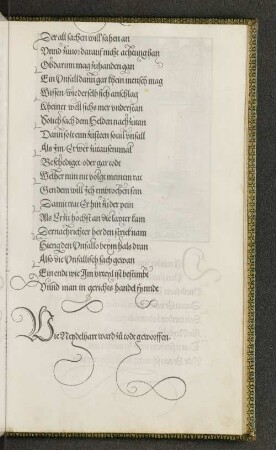 Der all sachen will sahen an
Vnnd zuuor darauf nicht achtung han
Ob darum mag zuhanden gan
Ein Vnfall dann gar khein mensch mag
Wissen wie der selb sich anschlag
Kheiner well sichs mer vnderstan
Solich sach dem Helden nach zutun
Dann sonnst mochten souil vnfall
Als Im Er wer zutausenmal
Beschediget oder gar todt
Welher nun nit volgt meinem rat
Gern dem will ich embrochen sein
Damit trat Er hin zu der pein
Als Er nu hocht an die layter kam
Der nachrichter her den strick nam
Hieng den Vnfallo beym hals dran
Also die Vnfallisch sach gewan
Ein ende wie Im vrteyl ist bestimbt
Vnnd man in gerichts handel fynndt
Wie Neydelhart ward zu tode geworffen.